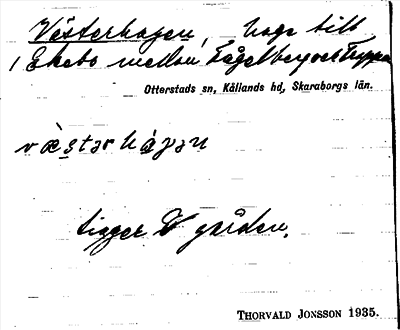 Västerhagen, hage till
/ Ekebo mellan Fågelberg och Troppen
Otterstads sn, Kållands hd, Skaraborgs län.
væstərhágən
ligger V gården.
THORVALD JONSSON 1935.